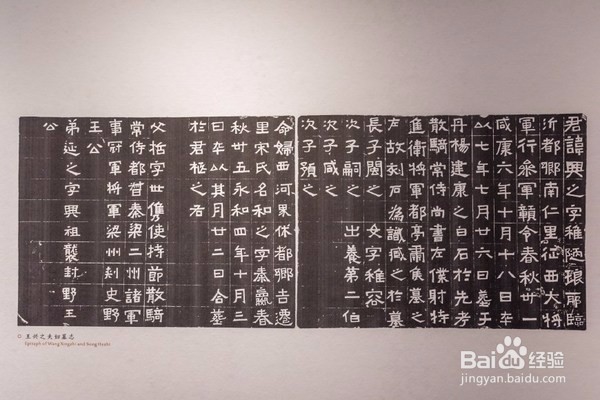 君諱興之字稚陋琅耶臨
沂都鄉南仁里征西大將
軍行參軍贛令春秋卅一
咸康六年十月十八日卒
以七年七月廿六日葬于
丹楊建康之白石於先考
散騎常侍尚書左僕射特
進衛將軍都亭肅侯墓之
左故刻石為識臧之於墓
長子閩之 女字稚容
次子嗣之 出養第二伯
次子咸之
次子預之
命婦西河界休都鄉吉遷
里宋氏名和之字秦嬴春
秋卅五永和四年十月三
日卒以其月廿二日合葬
於君柩之右
父哲字世儁使持節散騎
常侍都督秦梁二州諸軍
事冠軍將軍梁州刺史野
王公
弟延之字興祖襲封野王
公
王兴之夫妇墓志
Epitaph of Wang Xingzhi and Song Hezhi
Baidu经验
jingyan.baidu.com